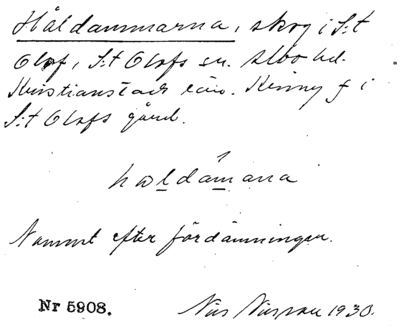 Håldammarna, skog i S:t
Olof, S:t Olofs sn. Albo hd.
Kristianstads län. Kinny f i
S:t Olofs gård.
haldámana
Namnet efter fördämningen.
Nr 5908. Nils Nilsson 1930.